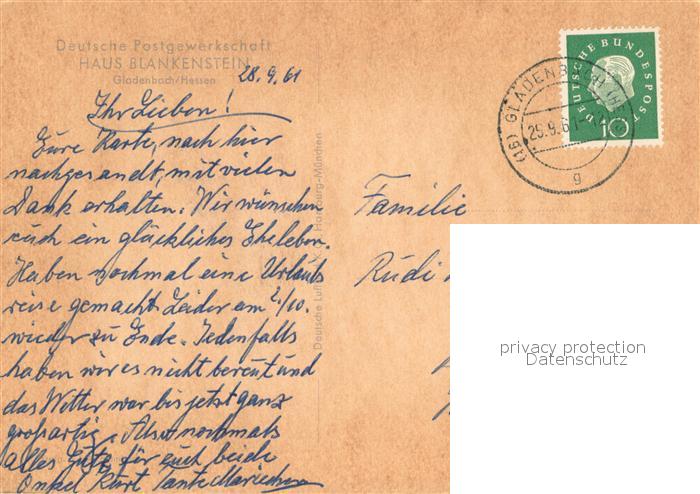 Deutsche Postgewerkschaft
HAUS BLANKENSTEIN
Gladenbach/Hessen
28.9.61
Ihr Lieben!
Eure Karte, nach hier
nachgesandt, mit vielen
Dank erhalten. Wir wünschen
euch ein glückliches Eheleben.
Haben nochmal eine Urlaubs
reise gemacht. Leider am 2/10.
wieder zu Ende. Jedenfalls
haben wir es nicht bereut und
das Wetter war bis jetzt ganz
großartig. Also nochmals
alles Gute für euch beide
Onkel Kurt Tante Mariechen
Deutsche Luft Hamburg-München
DEUTSCHE BUNDESPOST
10
(16) GLADENBACH
29.9.61
g
Familie
Rudi
privacy protection
Datenschutz